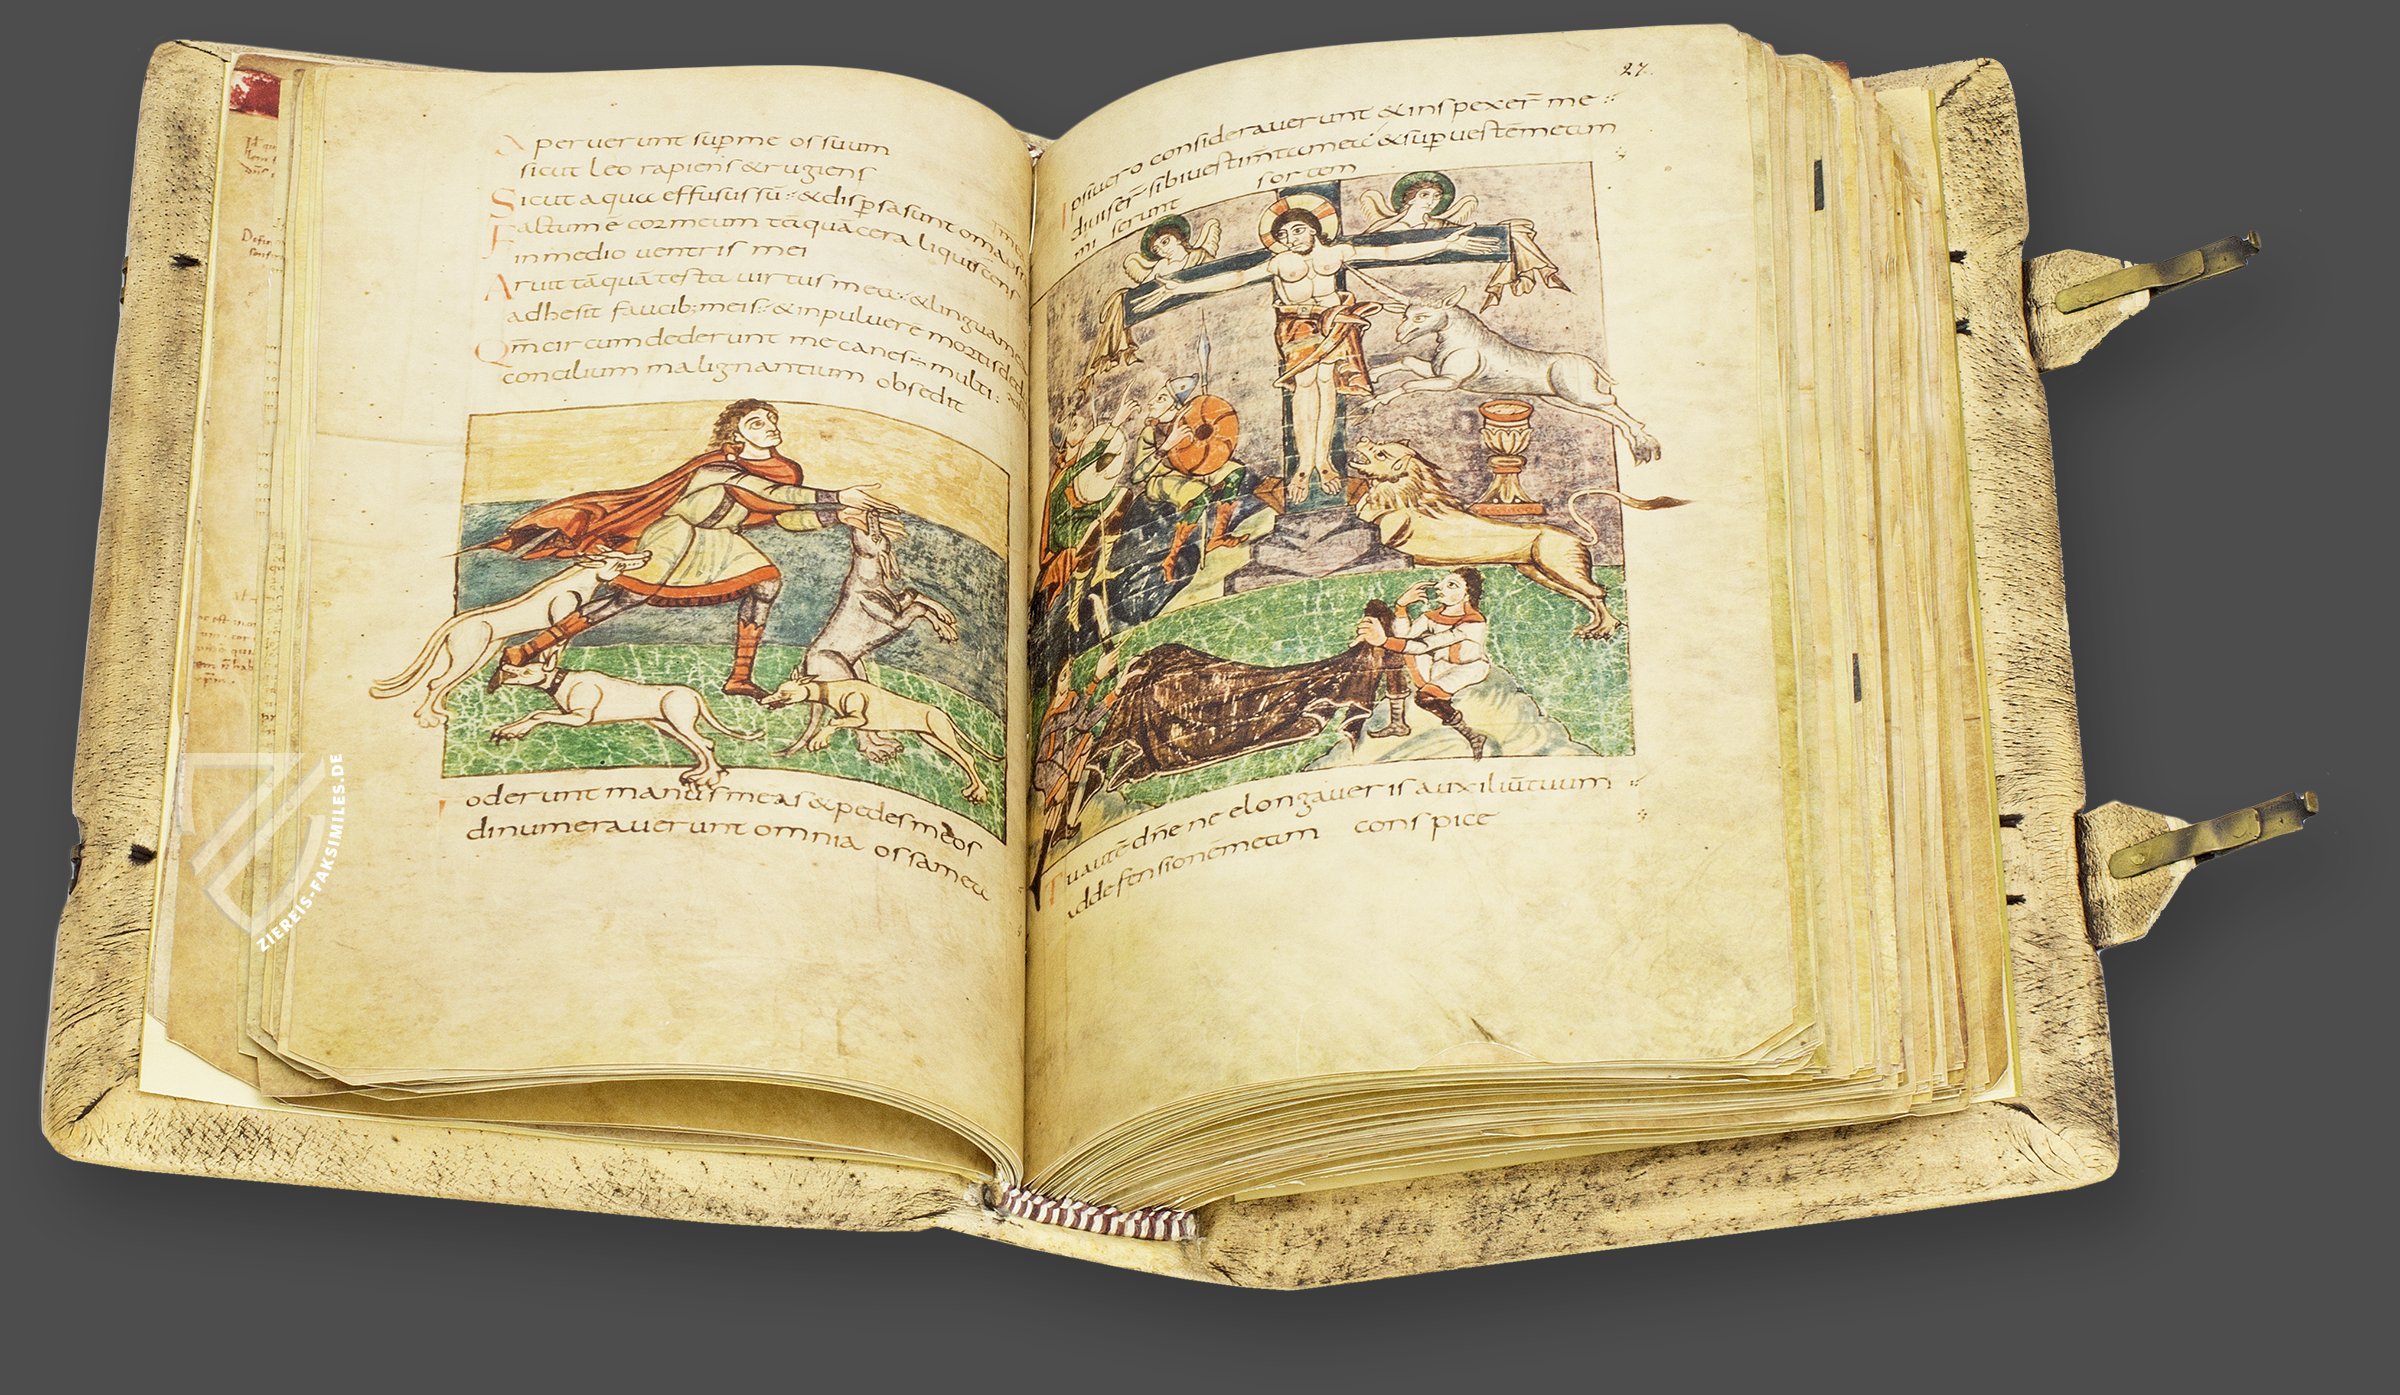 Aperuerunt sup̄ me os suum
sicut leo rapiens & rugiens
Sicut aqua effusus sū & dispsa sunt omīa
Factum ē cor meum tāquā cera liquiscens
in medio uentris mei
Aruit tāquā testa uirtus mea & lingua mea
adhesit faucib; meis & in puluerē mortis
Qm̄ circumdederunt me canes multi
concilium malignantium obsedit
foderunt manus meas & pedes meos
dinumerauerunt omnia ossa mea
27.
Ipsi uero considerauerunt & inspexer̄ me
diuiser̄ sibi uestim̄ta mea & sup uestē meam
mi serunt sortem
Tu autē dn̄e ne elongaueris auxiliū tuum
ad defensionē meam conspice
ZIEREIS-FAKSIMILES.DE